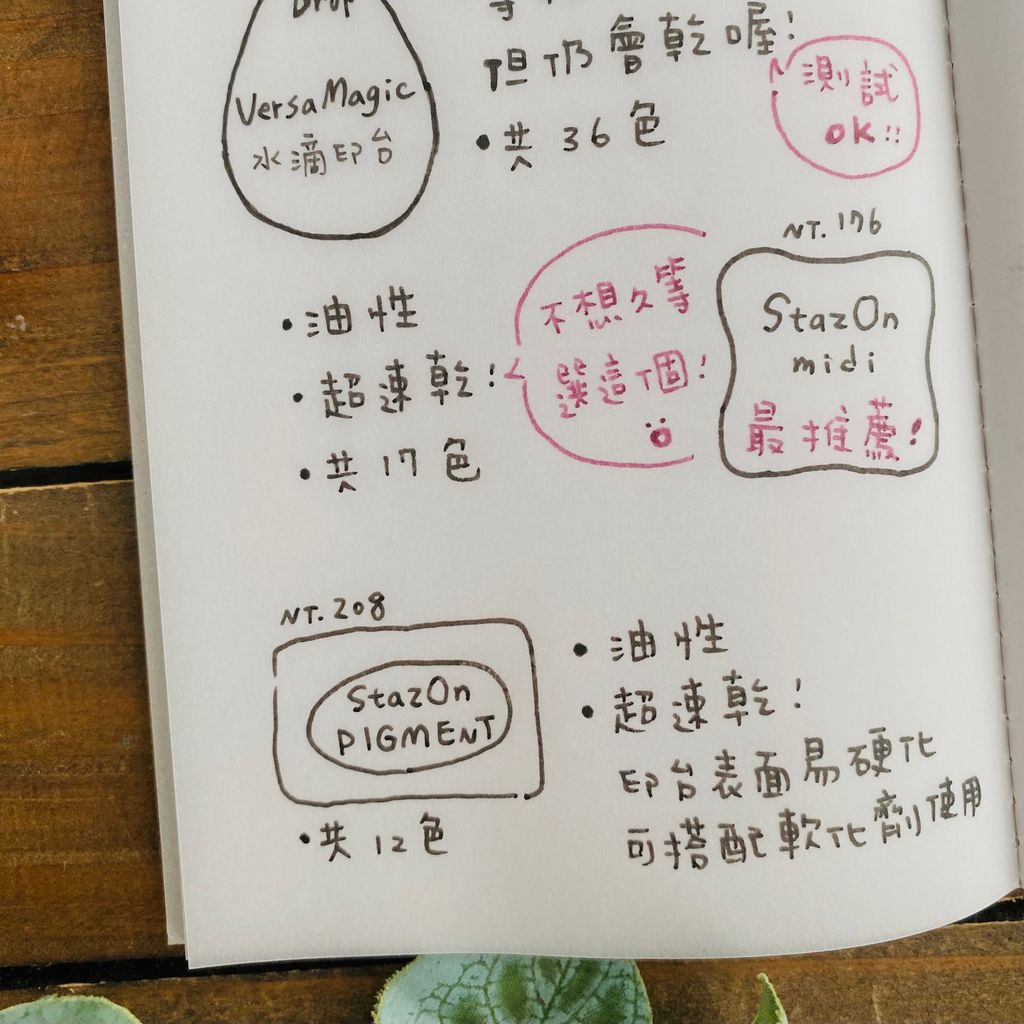 Drop
VersaMagic
水滴印台
但仍會乾喔!
•共36色
測試
OK!!
NT.176
StazOn
midi
最推薦!
•油性
•超速乾!
•共17色
不想久等
選這個!
NT.208
StazOn
PIGMENT
•共12色
•油性
•超速乾!
印台表面易硬化
可搭配軟化劑使用